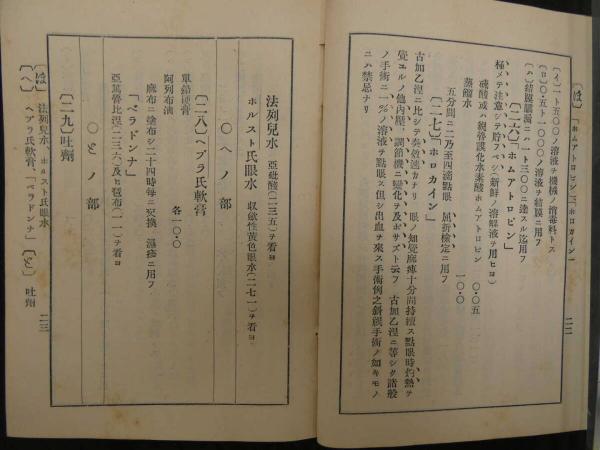 〔ほ〕「ホムアトロピン」、「ホロカイン」
二二
〔イ〕一ト五〇〇ノ溶液ヲ機械ノ消毒料トス
〔ロ〕〇・五ト一〇〇〇ノ溶液ヲ結膜ニ用フ
〔ハ〕結膜膿漏ニハ一ト三〇〇ニ達スル迄用フ
〔二六〕「ホムアトロピン」
極メテ注意シテ貯フベシ（新鮮ノ溶解液ヲ用ヒヨ）
硫酸或ハ純良誤化水素酸ホムアトロピン 〇・〇五
蒸餾水 一〇・〇
五分間ニ二乃至四滴點眼 屈折檢定ニ用フ
〔二七〕「ホロカイン」
古加乙涅ニ比シテ奏效速カナリ 眼ノ知覺麻痺十分間持續ス點眼時灼熱ヲ
覺ユルノ他內壓、調節機ニ變化ヲ及ボサズト云フ 古加乙涅ニ等シク諸般
ノ手術ニ一%ノ溶液ヲ點眼ス但シ出血ヲ來ス手術例之斜視手術ノ如キモノ
ニハ禁忌ナリ
法列兒水 亞砒酸（二三五）ヲ看ヨ
ホルスト氏眼水 收斂性黃色眼水（二七一）ヲ看ヨ
〇ヘノ部
〔二八〕ヘブラ氏軟膏
單鉛硬膏
阿列布油 各一〇・〇
麻布ニ塗布シ二十四時每ニ交換 濕疹ニ用フ
「ベラドンナ」
亞篤魯比涅（二三六）及ビ罨布（一一）ヲ看ヨ
〇とノ部
〔二九〕吐劑
〔ほ〕法列兒水、ホルスト氏眼水
〔へ〕ヘブラ氏軟膏、「ベラドンナ」〔と〕吐劑
二三